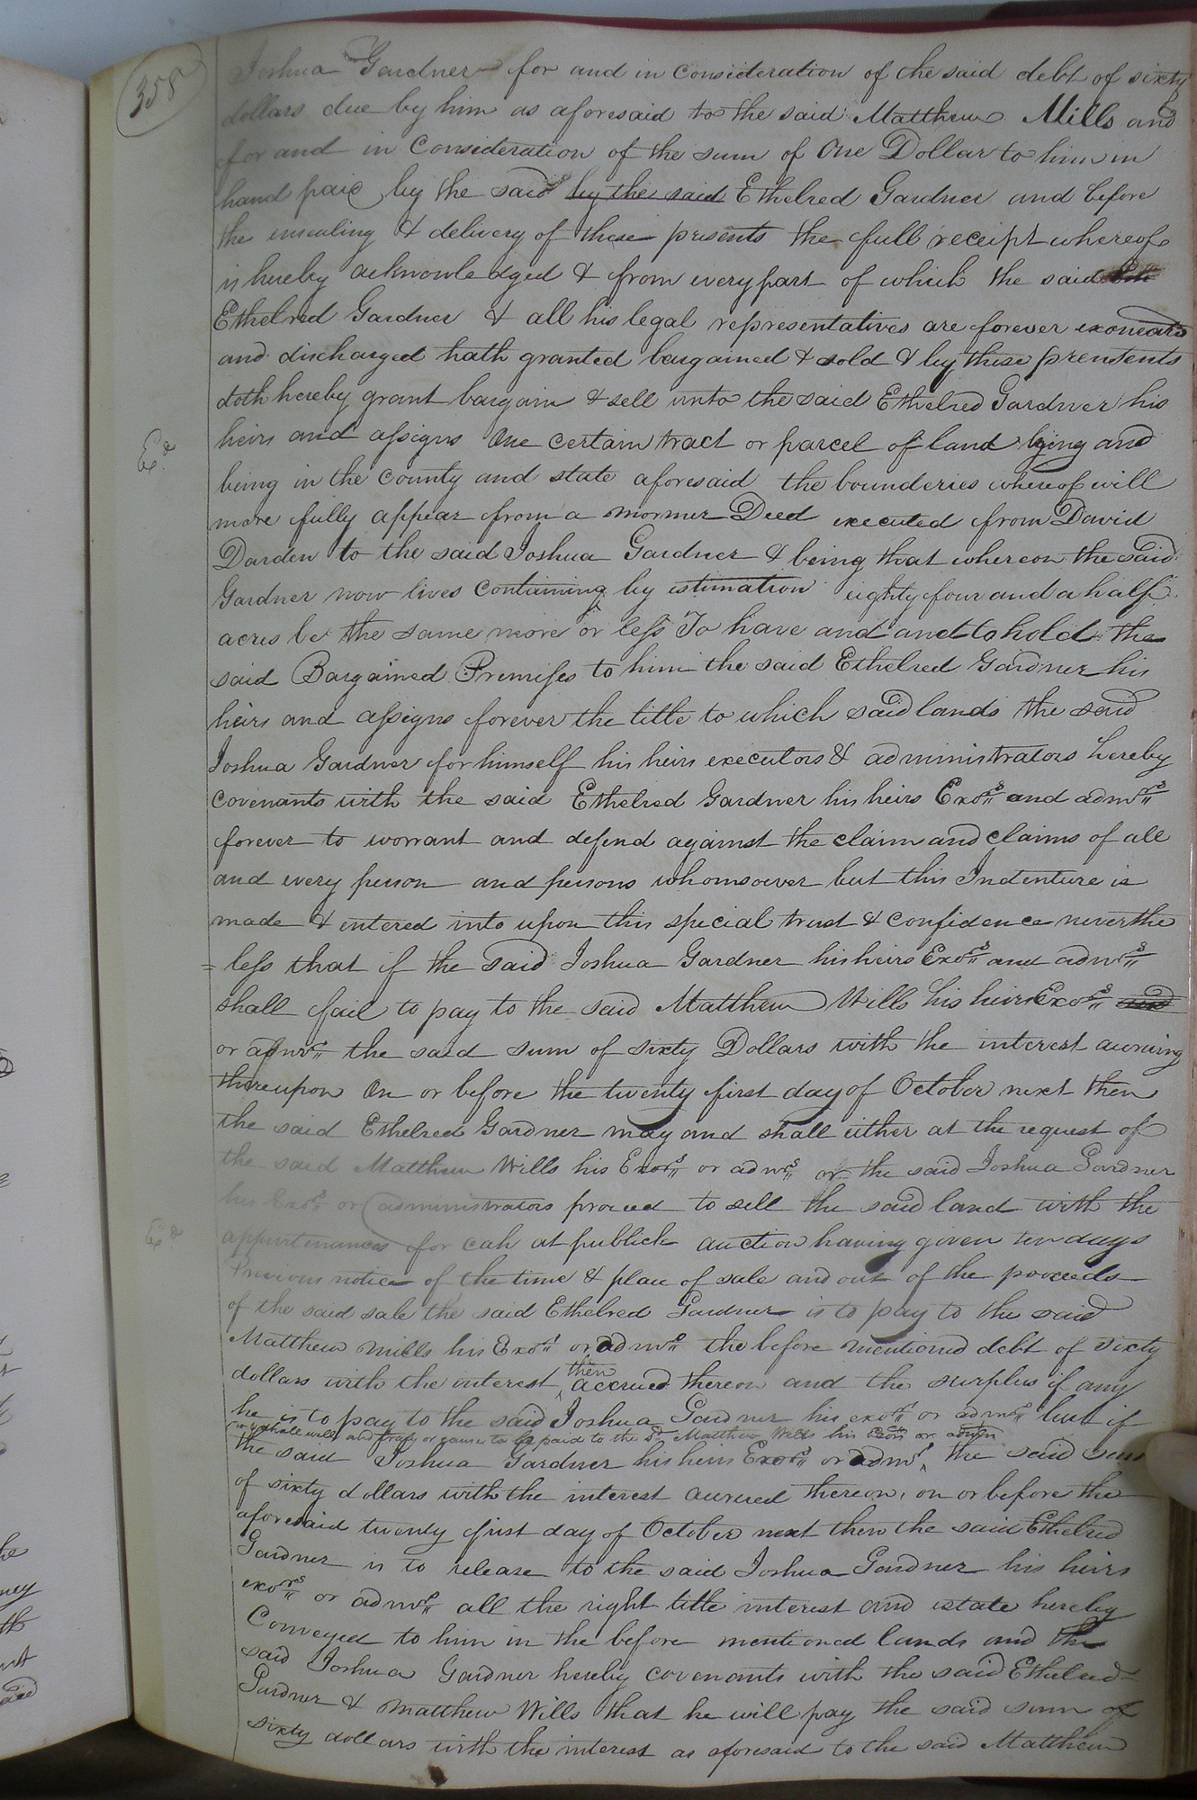 358
Joshua Gardner for and in consideration of the said debt of sixty
dollars due by him as aforesaid to the said Matthew Mills and
for and in Consideration of the sum of One Dollar to him in
hand paid by the said by the said Ethelred Gardner and before
the ensealing & delivery of these presents the full receipt whereof
is hereby acknowledged & from every part of which the said
Ethelred Gardner & all his legal representatives are forever
and discharged hath granted bargained & sold & by these presents
doth hereby grant bargain & sell unto the said Ethelred Gardner his
heirs and assigns One certain tract or parcel of land lying and
being in the county and state aforesaid the bounderies whereof will
more fully appear from a mormer Deed executed from David
Darden to the said Joshua Gardner & being that whereon the said
Gardner now lives containing by estimation eighty four and a half
acres be the same more or less To have and and to hold the
said Bargained Premises to him the said Ethelred Gardner his
heirs and assigns forever the title to which said lands the said
Joshua Gardner for himself his heirs executors & administrators hereby
covenants with the said Ethelred Gardner his heirs Exors and admrs
forever to warrant and defend against the claim and claims of all
and every person and persons whomsoever but this Indenture is
made & entered into upon this special trust & confidence neverthe
= less that if the said Joshua Gardner his heirs Exors and admrs
shall fail to pay to the said Matthew Wills his heirs Exors and
or admrs the said sum of sixty Dollars with the interest accruing
thereupon On or before the twenty first day of October next then
the said Ethelred Gardner may and shall either at the request of
the said Matthew Wills his Exors or admrs or the said Joshua Gardner
his Exors or administrators proceed to sell the said land with the
appurtenances for cah at publick auction having given ten days
Previous notice of the time & place of sale and out of the proceeds
of the said sale the said Ethelred Gardner is to pay to the said
Matthew Mills his Exors or admrs the before mentioned debt of sixty
dollars with the interest then accrued thereon and the surplus if any
he is to pay to the said Joshua Gardner his exors or admrs but if
shall well and pay or cause to be paid to the sd Matthew Wills his Exors or admrs
the said Joshua Gardner his heirs Exors or admrs the said sum
of sixty dollars with the interest accrued thereon, on or before the
aforesaid twenty first day of October next then the said Ethelred
Gardner is to release to the said Joshua Gardner his heirs
exors or admrs all the right title interest and estate hereby
Conveyed to him in the before mentioned lands and the
said Joshua Gardner hereby covenants with the said Ethelred
Gardner & Matthew Wills that he will pay the said sum of
sixty dollars with the interest as aforesaid to the said Matthew